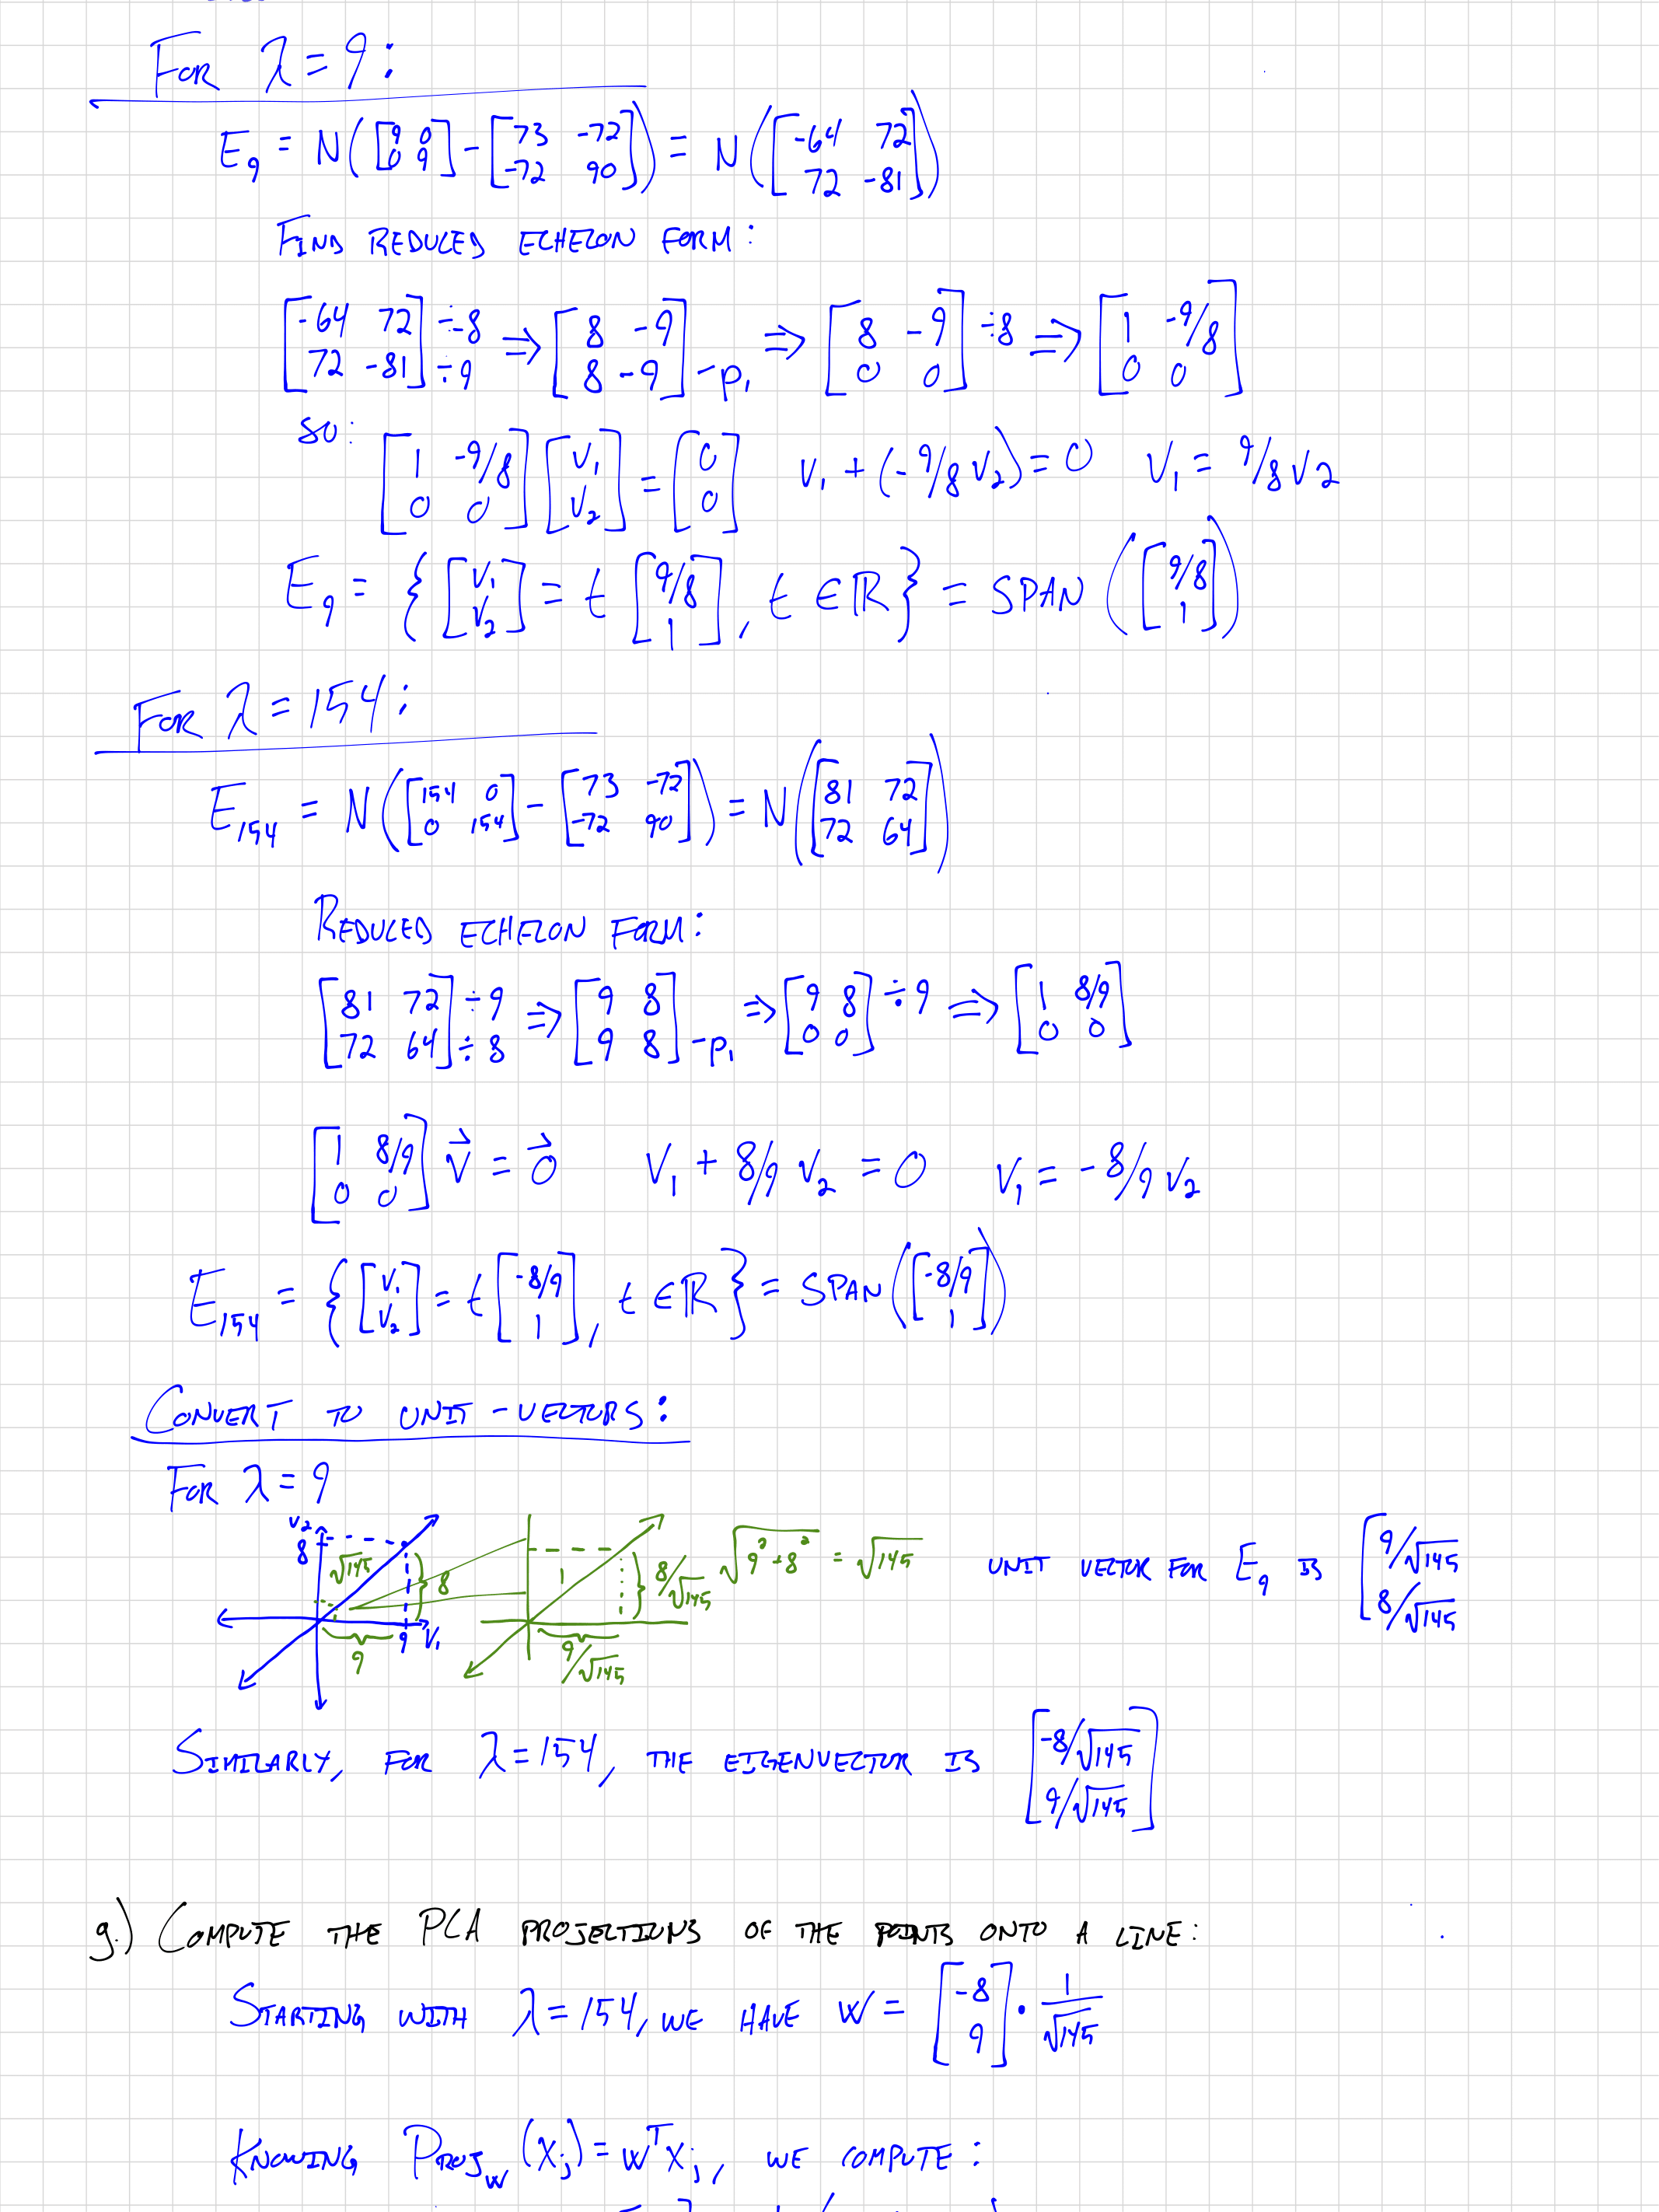 FOR λ = 9:
E₉ = N([9 0; 0 9] - [73 -72; -72 90]) = N([-64 72; 72 -81])
FIND REDUCED ECHELON FORM:
[-64 72; 72 -81] ÷-8 ÷9 ⇒ [8 -9; 8 -9] -P₁ ⇒ [8 -9; 0 0] ÷8 ⇒ [1 -9/8; 0 0]
SO: [1 -9/8; 0 0] [V₁; V₂] = [0; 0] V₁ + (-9/8 V₂) = 0 V₁ = 9/8 V2
E₉ = {[V₁; V₂] = t [9/8; 1], t ∈ ℝ} = SPAN([9/8; 1])
FOR λ = 154:
E₁₅₄ = N([154 0; 0 154] - [73 -72; -72 90]) = N([81 72; 72 64])
REDUCED ECHELON FORM:
[81 72; 72 64] ÷9 ÷8 ⇒ [9 8; 9 8] -P₁ ⇒ [9 8; 0 0] ÷9 ⇒ [1 8/9; 0 0]
[1 8/9; 0 0] v⃗ = 0⃗ V₁ + 8/9 V₂ = 0 V₁ = -8/9 V₂
E₁₅₄ = {[V₁; V₂] = t [-8/9; 1], t ∈ ℝ} = SPAN([-8/9; 1])
CONVERT TO UNIT-VECTORS:
FOR λ = 9
V₂ 8 √145 8 9 9 V₁
1 8/√145 9/√145
√(9² + 8²) = √145
UNIT VECTOR FOR E₉ IS [9/√145; 8/√145]
SIMILARLY, FOR λ = 154, THE EIGENVECTOR IS [-8/√145; 9/√145]
g.) COMPUTE THE PCA PROJECTIONS OF THE POINTS ONTO A LINE:
STARTING WITH λ = 154, WE HAVE W = [-8; 9] · 1/√145
KNOWING PROJ_W (X_j) = W^T X_j, WE COMPUTE: